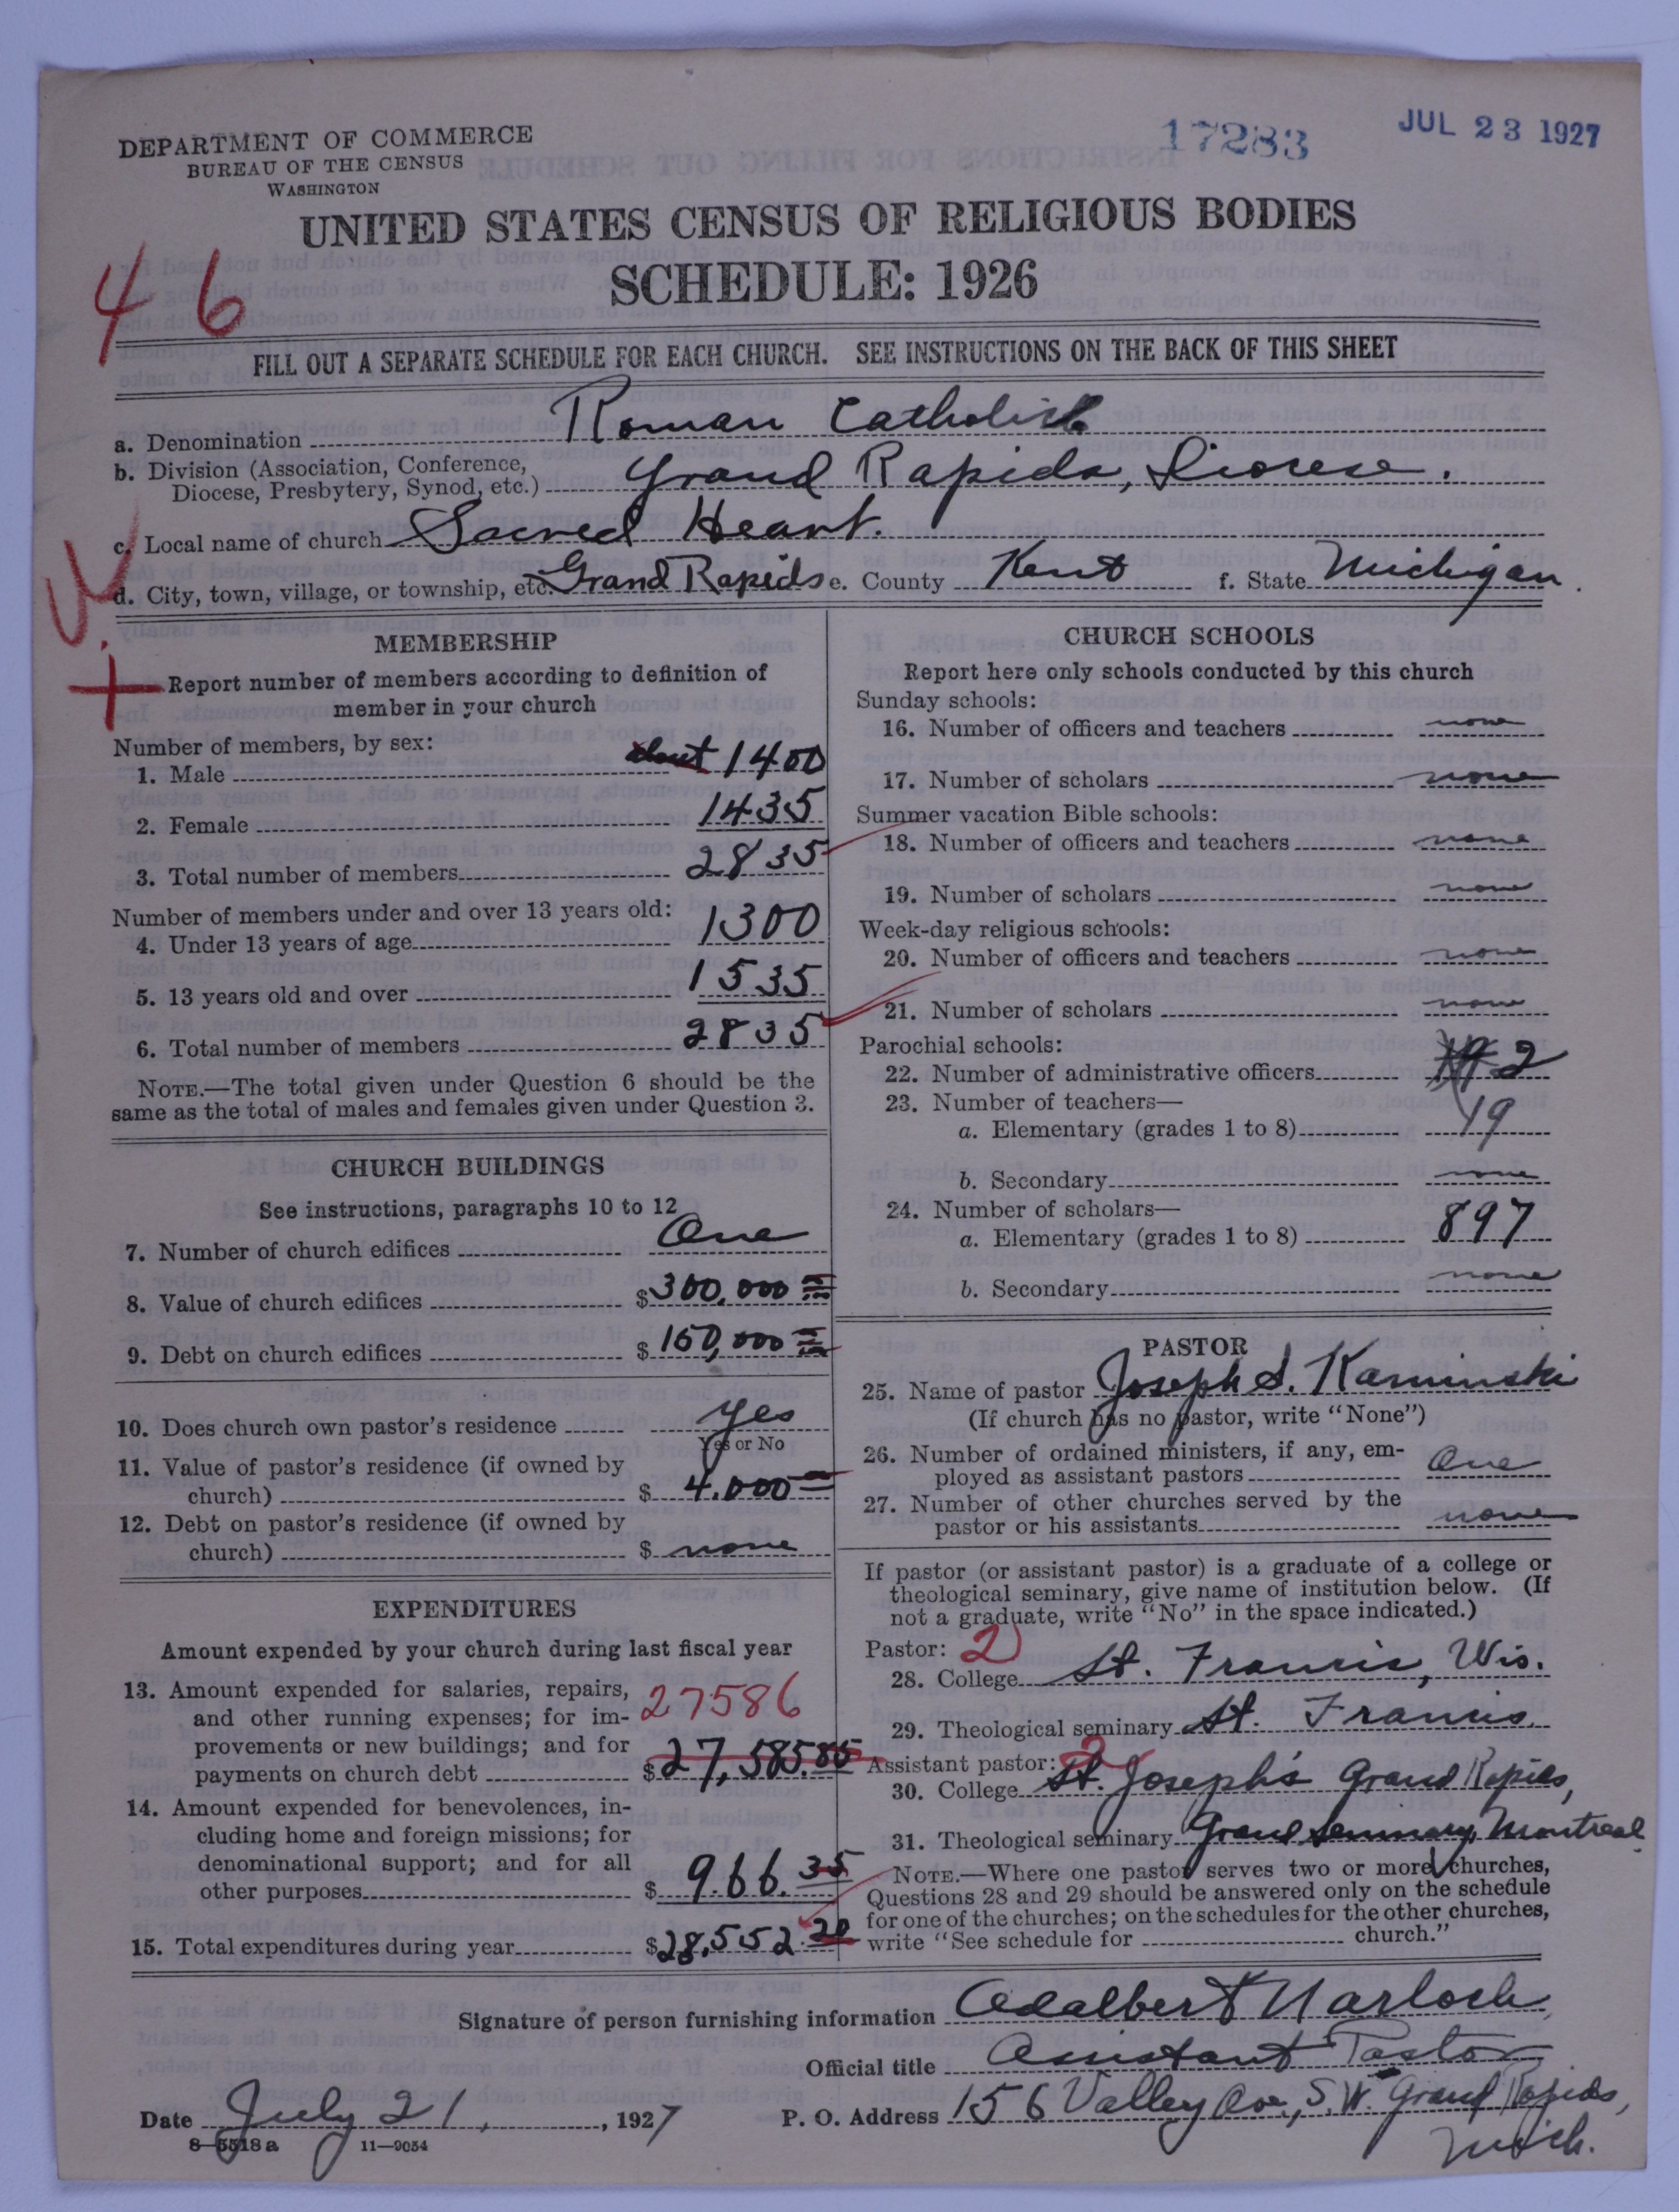 DEPARTMENT OF COMMERCE
BUREAU OF THE CENSUS
WASHINGTON
17283
JUL 23 1927
UNITED STATES CENSUS OF RELIGIOUS BODIES
SCHEDULE: 1926
46
FILL OUT A SEPARATE SCHEDULE FOR EACH CHURCH. SEE INSTRUCTIONS ON THE BACK OF THIS SHEET
a. Denomination Roman Catholic
b. Division (Association, Conference,
Diocese, Presbytery, Synod, etc.) Grand Rapids, Diocese.
c. Local name of church Sacred Heart.
d. City, town, village, or township, etc. Grand Rapids e. County Kent f. State Michigan.
MEMBERSHIP
Report number of members according to definition of
member in your church
Number of members, by sex:
1. Male about 1400
2. Female 1435
3. Total number of members 2835
Number of members under and over 13 years old:
4. Under 13 years of age 1300
5. 13 years old and over 1535
6. Total number of members 2835
NOTE.—The total given under Question 6 should be the
same as the total of males and females given under Question 3.
CHURCH BUILDINGS
See instructions, paragraphs 10 to 12
7. Number of church edifices One
8. Value of church edifices $300,000
9. Debt on church edifices $150,000
10. Does church own pastor's residence yes
Yes or No
11. Value of pastor's residence (if owned by
church) $ 4.000
12. Debt on pastor's residence (if owned by
church) $ none
EXPENDITURES
Amount expended by your church during last fiscal year
13. Amount expended for salaries, repairs,
and other running expenses; for im-
provements or new buildings; and for
payments on church debt $27,585.85
27586
14. Amount expended for benevolences, in-
cluding home and foreign missions; for
denominational support; and for all
other purposes $ 966.35
15. Total expenditures during year $28,552.20
CHURCH SCHOOLS
Report here only schools conducted by this church
Sunday schools:
16. Number of officers and teachers none
17. Number of scholars none
Summer vacation Bible schools:
18. Number of officers and teachers none
19. Number of scholars none
Week-day religious schools:
20. Number of officers and teachers none
21. Number of scholars none
Parochial schools:
22. Number of administrative officers 2
23. Number of teachers—
a. Elementary (grades 1 to 8) 19
b. Secondary none
24. Number of scholars—
a. Elementary (grades 1 to 8) 897
b. Secondary none
PASTOR
25. Name of pastor Joseph S. Kaminski
(If church has no pastor, write "None")
26. Number of ordained ministers, if any, em-
ployed as assistant pastors One
27. Number of other churches served by the
pastor or his assistants none
If pastor (or assistant pastor) is a graduate of a college or
theological seminary, give name of institution below. (If
not a graduate, write "No" in the space indicated.)
Pastor: 2
28. College St. Francis, Wis.
29. Theological seminary St. Francis
Assistant pastor: 2
30. College St. Joseph's Grand Rapids,
31. Theological seminary Grand Seminary, Montreal
NOTE.—Where one pastor serves two or more churches,
Questions 28 and 29 should be answered only on the schedule
for one of the churches; on the schedules for the other churches,
write "See schedule for church."
Signature of person furnishing information Adalbert Narloch
Official title Assistant Pastor
Date July 21, 1927 P. O. Address 156 Valley Ave., S.W. Grand Rapids,
Mich.
8—5518 a 11—9054